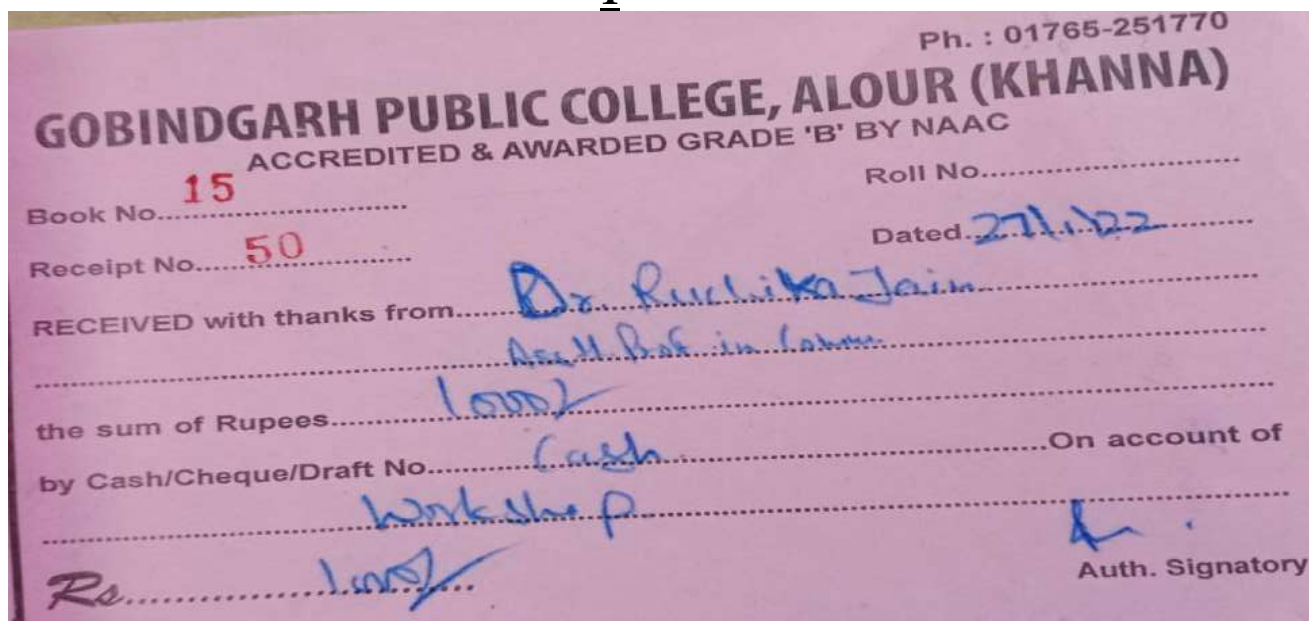 Ph. : 01765-251770
GOBINDGARH PUBLIC COLLEGE, ALOUR (KHANNA)
ACCREDITED & AWARDED GRADE 'B' BY NAAC
Book No. 15 Roll No.
Receipt No. 50 Dated. 27/1/22
RECEIVED with thanks from Dr. Ruchika Jain
in
the sum of Rupees 1000/
by Cash/Cheque/Draft No. Cash On account of
Workshop
Rs. 1000/
Auth. Signatory